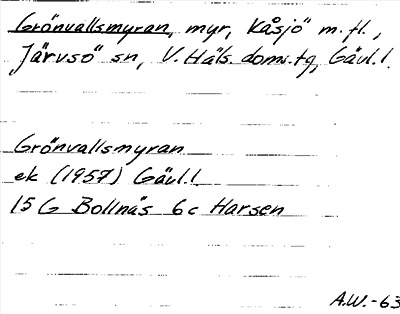 Grönvallsmyran, myr, Kåsjö m.fl.,
Järvsö sn, V. Häls. doms.tg, Gävl.l.
Grönvallsmyran
ek (1957) Gävl.l.
15 G Bollnäs 6c Harsen
A.W.-63